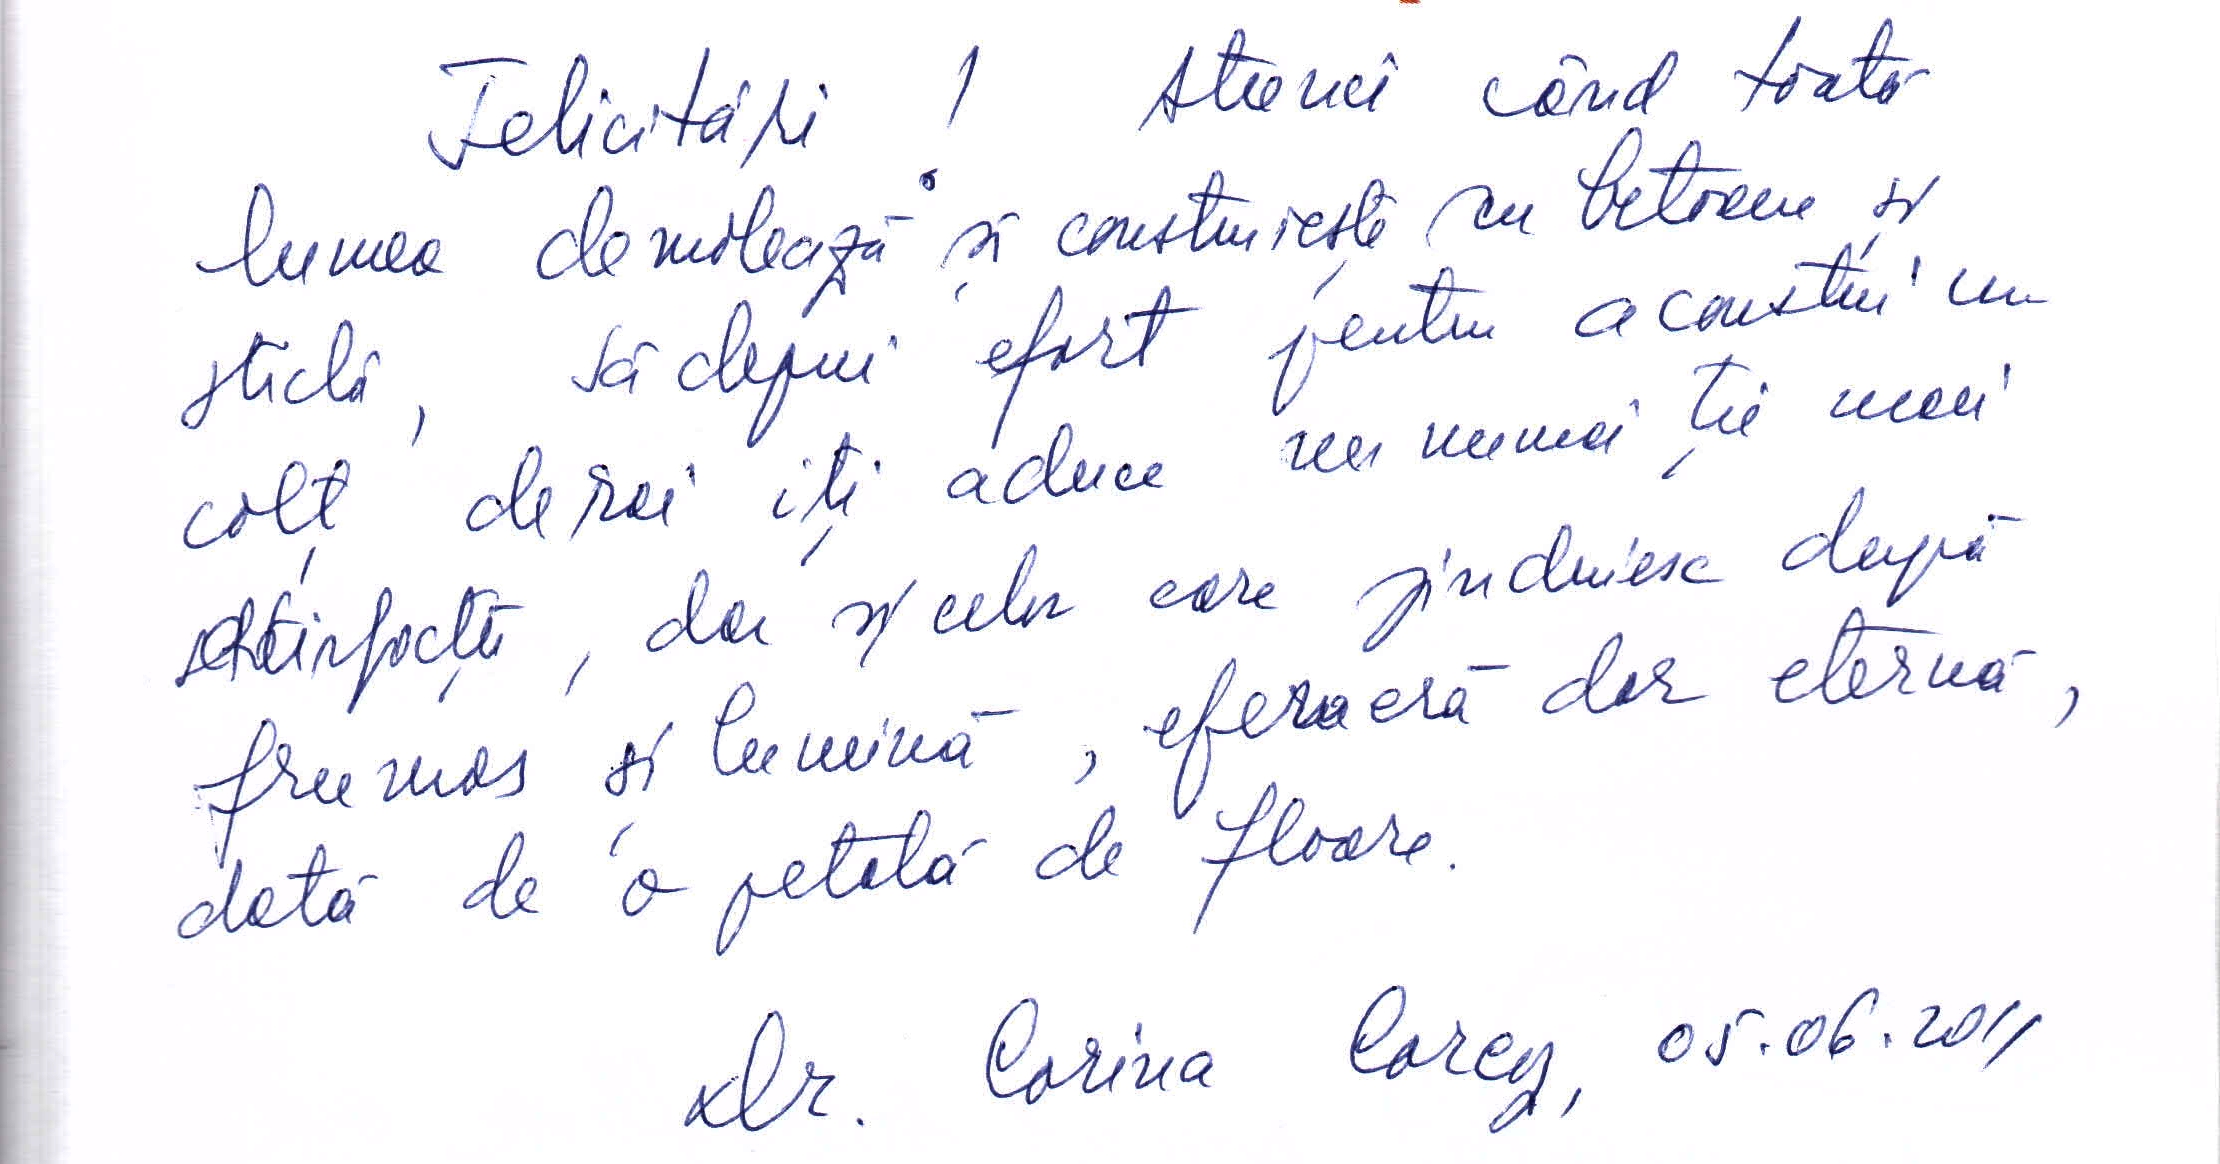 Felicitări! Atunci când toată
lumea demolează și construiește cu betoane și
sticlă, să depui efort pentru a construi un
colț de rai îți aduce nu numai ție mari
satisfacții, dar și celor care jinduiesc după
frumos și lumină, efemeră dar eternă,
dată de o petală de floare.
Dr. Corina 05.06.2011